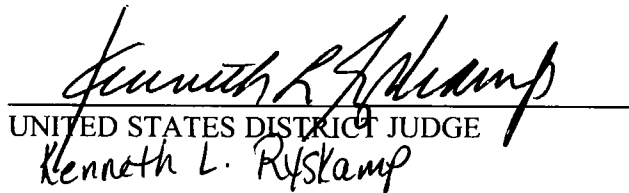 Kenneth L Ryskamp
UNITED STATES DISTRICT JUDGE
Kenneth L. Ryskamp